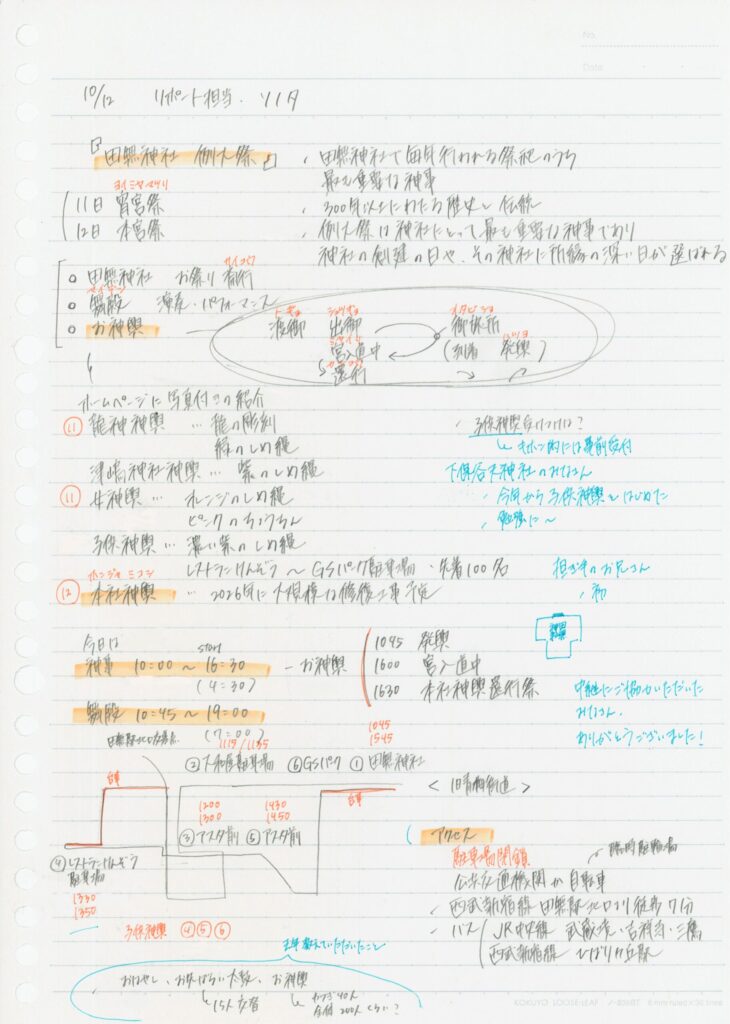 No.
Date
10/12 リポート担当・ソノダ
『田無神社 例大祭』
、田無神社で毎年行われる祭祀のうち
最も重要な神事
ヨイミヤマツリ
11日 宵宮祭
、300年以上にわたる歴史と伝統
12日 本宮祭
、例大祭は神社にとって最も重要な神事であり
神社の創建の日や、その神社に所縁の深い日が選ばれる
○ 田無神社 お祭り
○ 演奏・パフォーマンス
○ お神輿
トギョ
渡御 出御 御旅所
宮入道中 (到着 発輿)
還行
ホームページに写真付きの紹介
⑪ 龍神神輿 … 龍の彫刻
緑のしめ縄
津嶋神社神輿 … 紫のしめ縄
⑪ 女神輿 … オレンジのしめ縄
ピンクのちょうちん
子供神輿 … 濃い紫のしめ縄
レストランけんぞう 〜 GSパーク駐車場・先着100名
ホンジャ ミコシ
⑫ 本社神輿 … 2026年に大規模な修復工事予定
、子供神輿受付は?
事前受付
下保谷天神社のみなさん
、今年から子供神輿をはじめた
、勉強に〜
担ぎ手のお兄さん
、初
今日は
START
神事 10:00 〜 16:30 − お神輿
(4:30)
1045 発輿
1600 宮入道中
1630 本社神輿還行祭
10:45 〜 19:00
(7:00)
中継にご協力いただいた
みなさん、
ありがとうございました!
1045
1545
1115/1135
② 大和屋駐車場 ⑥ GSパーク ① 田無神社
<旧青梅街道>
台車
台車
1200
1300
1430
1450
③ アスタ前 ⑤ アスタ前
④ レストランけんぞう
駐車場
1330
1350
子供神輿 ④⑤⑥
アクセス
駐車場閉鎖
臨時駐輪場
公共交通機関か自転車
、西武新宿線 田無駅北口より徒歩7分
、バス JR中央線 武蔵境・吉祥寺・三鷹
ひばりヶ丘駅
去年教えていただいたこと
おはやし、お神輿
15人
かつぎ40人
200人くらい?
KOKUYO LOOSE-LEAF ノ-836BT 6 mm ruled×36 lines